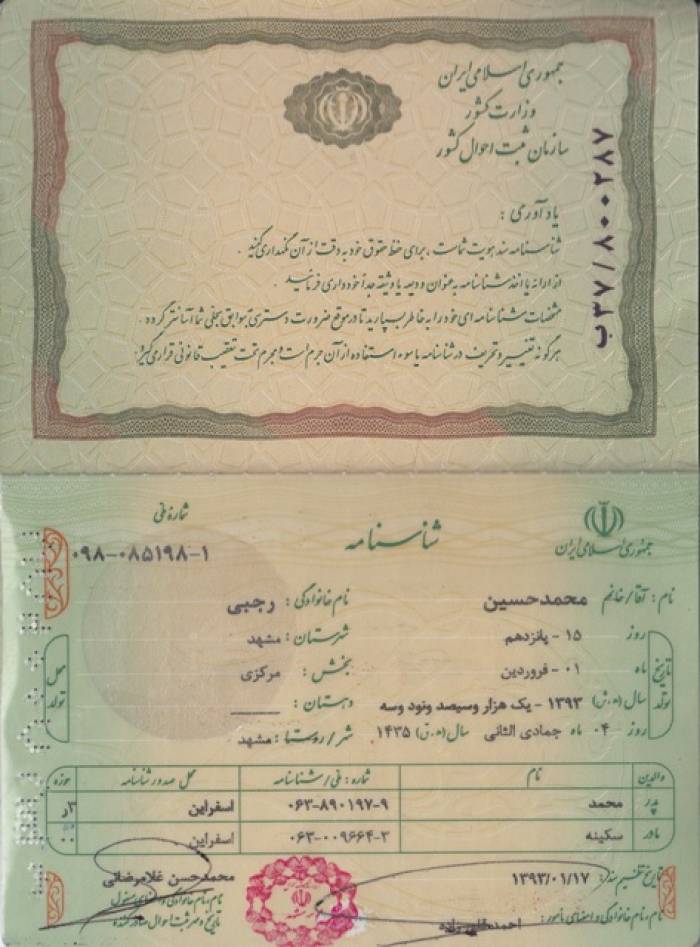 جمهوری اسلامی ایران
وزارت کشور
سازمان ثبت احوال کشور
ب۳۷/۸۰۰۲۸۷
یادآوری :
شناسنامه سند هویت شماست ، برای حفظ حقوق خود به دقت از آن نگهداری کنید .
از ارائه یا اخذ شناسنامه به عنوان ودیعه یا وثیقه جداً خودداری فرمائید .
مشخصات شناسنامه ای خود را به خاطر بسپارید تا در موقع ضرورت دسترسی به سوابق سجلی شما آسانتر گردد .
هر گونه تغییر و تحریف در شناسنامه یا سوء استفاده از آن جرم است و مجرم تحت تعقیب قانونی قرار می گیرد .
جمهوری اسلامی ایران
شناسنامه
شماره ملی
۰۹۸-۰۸۵۱۹۸-۱
نام : آقا/خانم محمدحسین نام خانوادگی : رجبی
تاریخ تولد
روز ۱۵ - پانزدهم
ماه ۰۱ - فروردین
سال (ه.ش) ۱۳۹۳ - یک هزار وسیصد ونود وسه
روز ۰۴ ماه جمادی الثانی سال (ه.ق) ۱۴۳۵
محل تولد
شهرستان : مشهد
بخش : مرکزی
دهستان :
شهر/روستا : مشهد
والدین نام شماره : ملی/شناسنامه محل صدور شناسنامه حوزه
پدر محمد ۰۶۳-۸۹۰۱۹۷-۹ اسفراین ۳ر
مادر سکینه ۰۶۳-۰۰۹۶۶۴-۳ اسفراین ۰۰
تاریخ تنظیم سند : ۱۳۹۳/۰۱/۱۷
نام، نام خانوادگی و امضای مأمور :
محمدحسن غلامرضائی
نام، نام خانوادگی و امضای مسئول
تاریخ و مهر ثبت احوال صادر کننده